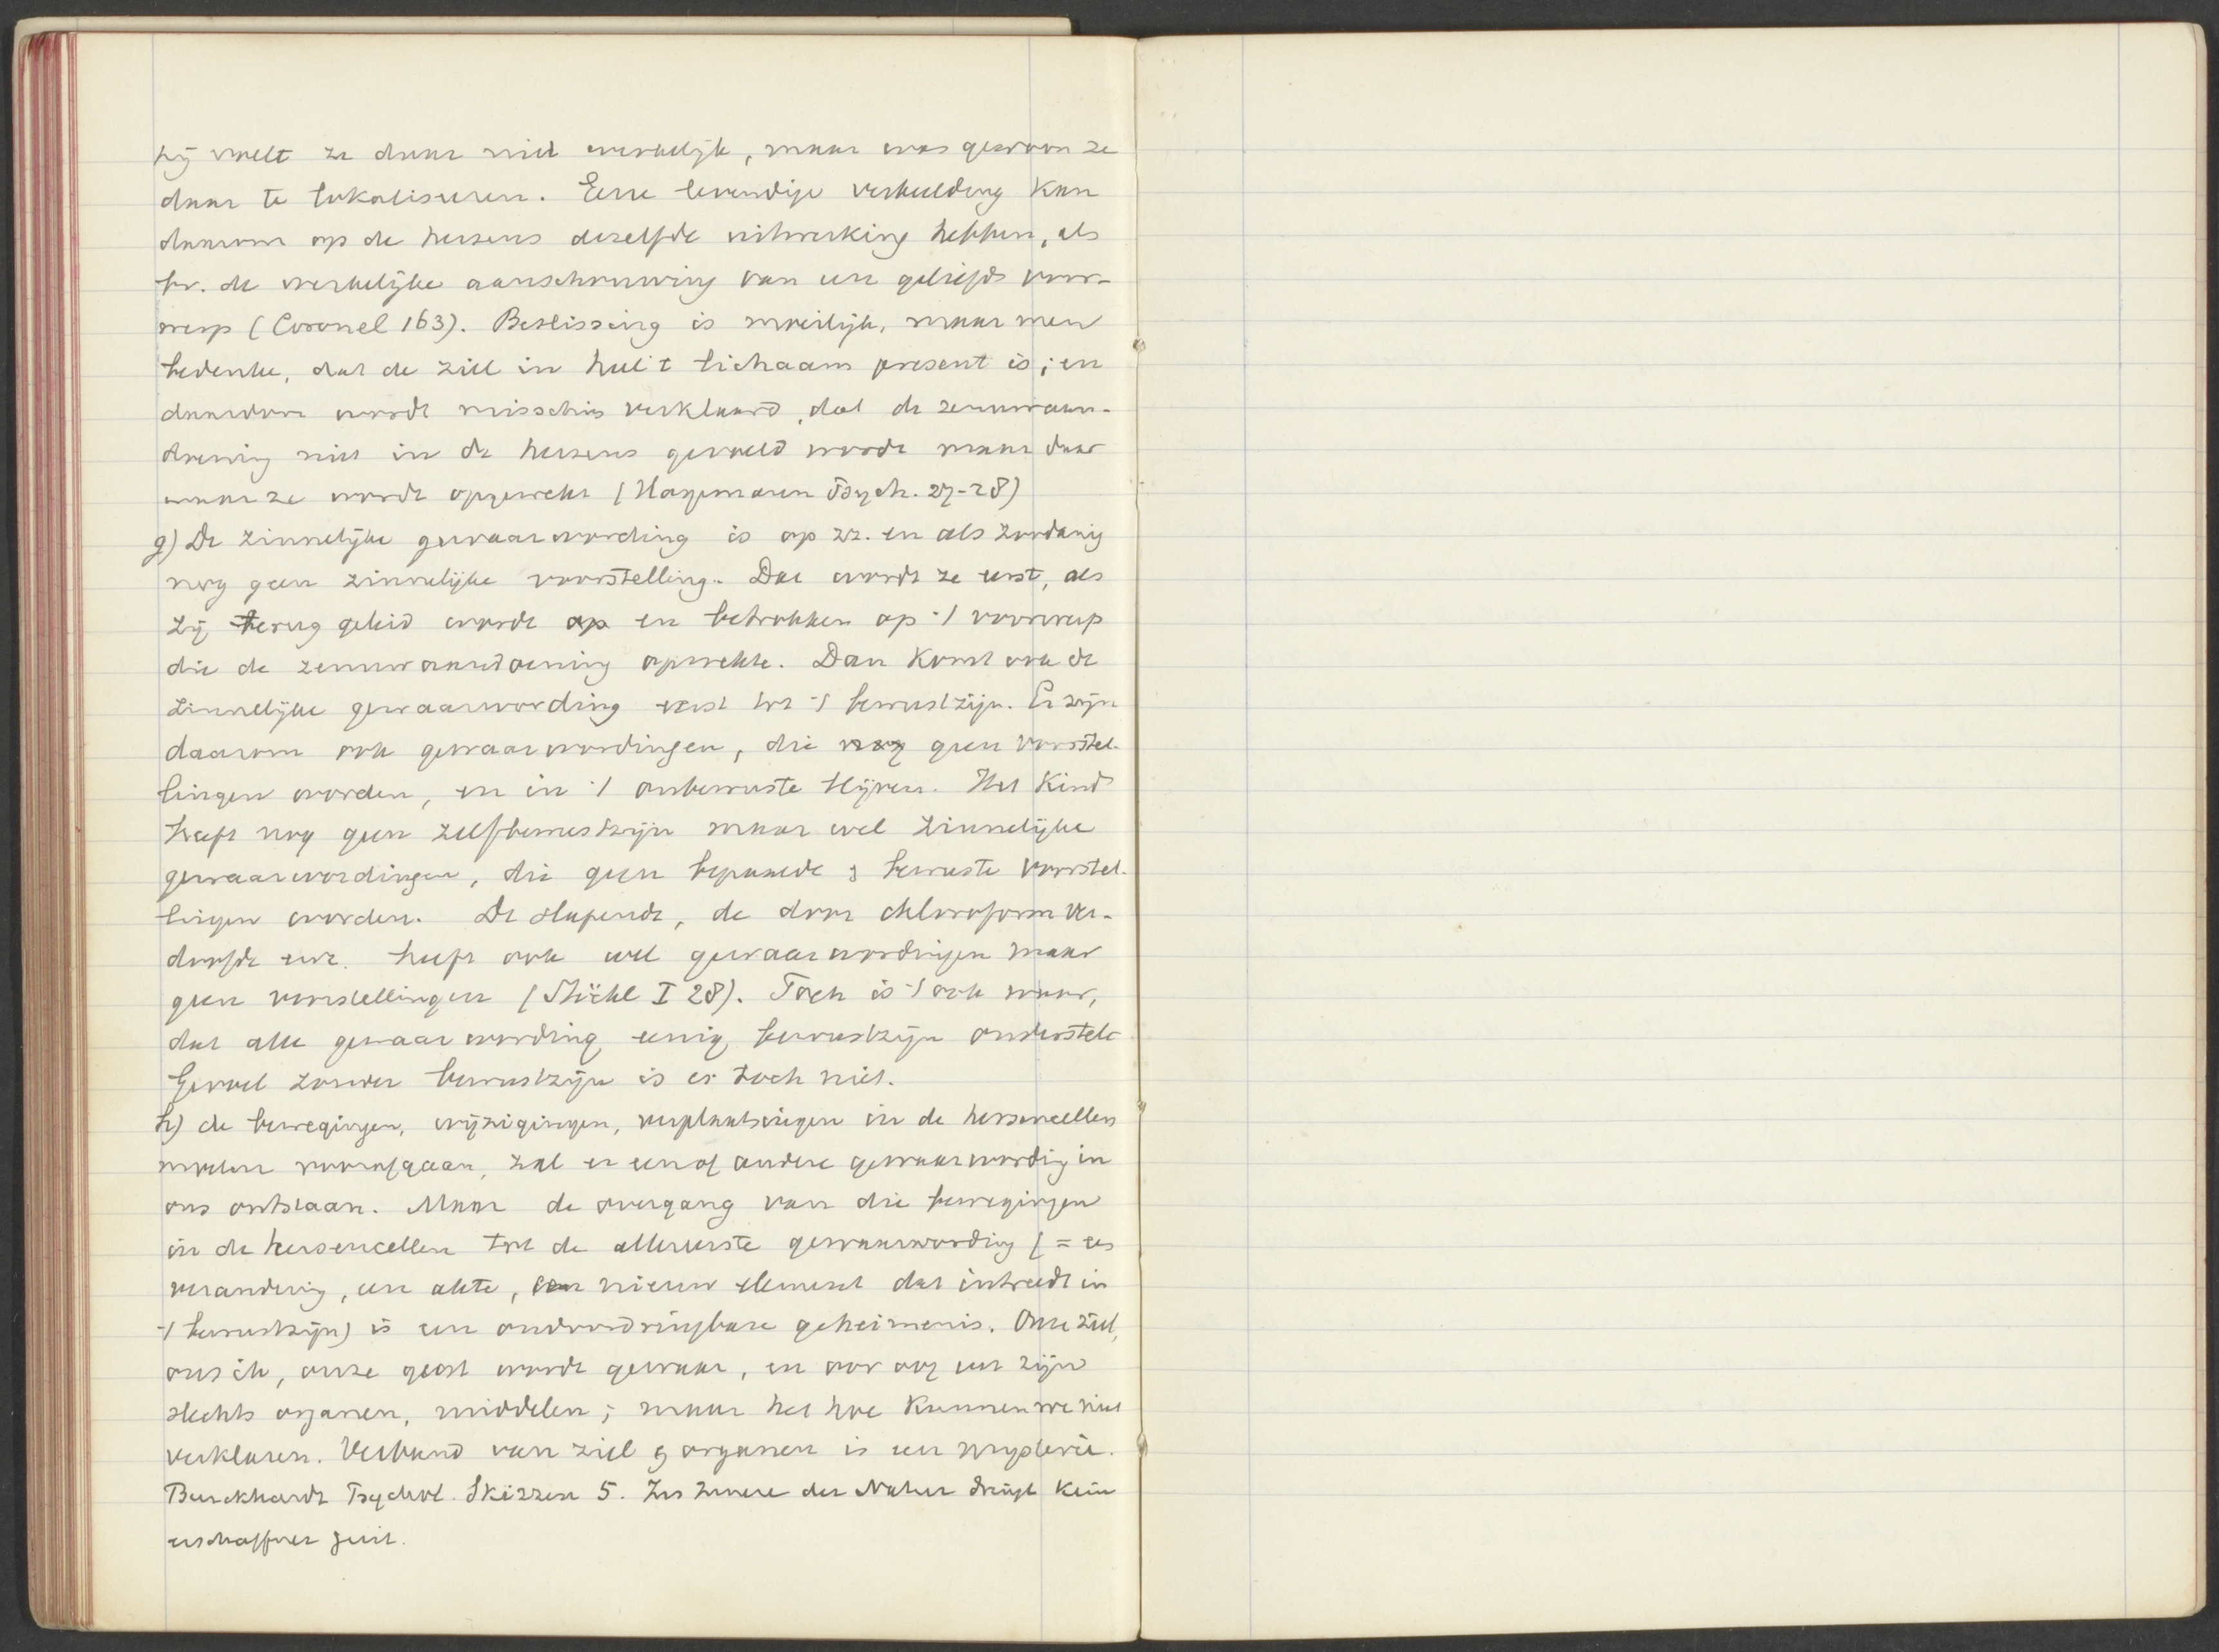 hij voelt ze daar niet werkelijk, maar was gewoon ze
daar te lokaliseren. Eene levendige verbeelding kan
daarom op de hersens dezelfde uitwerking hebben, als
bv. de werkelijke aanschouwing van een geliefd voor-
werp (Coronel 163). Beslissing is moeilijk, maar men
bedenke, dat de ziel in heel 't lichaam present is; en
daardoor wordt misschien verklaard, dat de zenuwaan-
doening niet in de hersens gevoeld wordt maar daar
waar ze wordt opgewekt (Hagemann Psych. 27-28)
g) De zinnelijke gewaarwording is op zz. en als zoodanig
nog geen zinnelijke voorstelling. Dat wordt ze eerst, als
zij terug geleid wordt op en betrokken op 't voorwerp
die de zenuwaandoening opwekte. Dan komt ook de
zinnelijke gewaarwording eerst tot 't bewustzijn. Er zijn
daarom ook gewaarwordingen, die nog geen voorstel-
lingen worden, en in 't onbewuste blijven. Het kind
heeft nog geen zelfbewustzijn maar wel zinnelijke
gewaarwordingen, die geen bepaalde & bewuste voorstel-
lingen worden. De slapende, de door chloroform ver-
doofde enz. heeft ook wel gewaarwordingen maar
geen voorstellingen (Stöckl I 28). Toch is 't ook waar,
dat alle gewaarwording eenig bewustzijn onderstelt
Gevoel zonder bewustzijn is er toch niet.
h) de bewegingen, wijzigingen, verplaatsingen in de hersencellen
moeten voorafgaan, zal er een of andere gewaarwording in
ons ontstaan. Maar de overgang van die bewegingen
in de hersencellen tot de allereerste gewaarwording (= een
verandering, een akte, een nieuw element dat intreedt in
't bewustzijn) is een ondoordringbare geheimenis. Onze ziel,
ons ik, onze geest wordt gewaar, en oor oog enz zijn
slechts organen, middelen; maar het hoe kunnen we niet
verklaren. Verband van ziel & organen is een mysterie.
Burckhardt Psychol. Skizzen 5. Ins Innere der Natur dringt kein
erschaffner Geist.